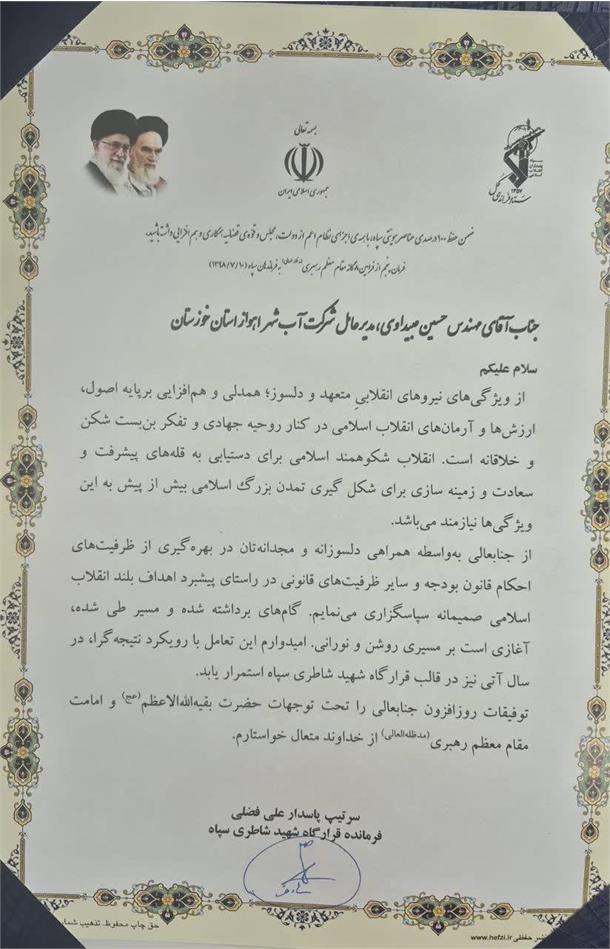 بسمه تعالی
جمهوری اسلامی ایران
سپاه
پاسداران
انقلاب
اسلامی
۱۳۵۷
ضمن حفظ ۱۰۰ درصدی عناصر هویتی سپاه، با همه‌ی اجزای نظام اعم از دولت، مجلس و قوه‌ی قضائیه همکاری و هم افزایی داشته باشید.
فرمان پنجم از فرامین ۸گانه مقام معظم رهبری (مدظله العالی) به فرماندهان سپاه (۱۳۹۸/۷/۱۰)
جناب آقای مهندس حسین عبیداوی، مدیرعامل شرکت آب شهر اهواز استان خوزستان
سلام علیکم
از ویژگی‌های نیروهای انقلابیِ متعهد و دلسوز؛ همدلی و هم‌افزایی برپایه اصول،
ارزش‌ها و آرمان‌های انقلاب اسلامی در کنار روحیه جهادی و تفکر بن‌بست شکن
و خلاقانه است. انقلاب شکوهمند اسلامی برای دستیابی به قله‌های پیشرفت و
سعادت و زمینه سازی برای شکل گیری تمدن بزرگ اسلامی بیش از پیش به این
ویژگی‌ها نیازمند می‌باشد.
از جنابعالی به‌واسطه همراهی دلسوزانه و مجدانه‌تان در بهره‌گیری از ظرفیت‌های
احکام قانون بودجه و سایر ظرفیت‌های قانونی در راستای پیشبرد اهداف بلند انقلاب
اسلامی صمیمانه سپاسگزاری می‌نمایم. گام‌های برداشته شده و مسیر طی شده،
آغازی است بر مسیری روشن و نورانی. امیدوارم این تعامل با رویکرد نتیجه‌گرا، در
سال آتی نیز در قالب قرارگاه شهید شاطری سپاه استمرار یابد.
توفیقات روزافزون جنابعالی را تحت توجهات حضرت بقیه‌الله‌الاعظم(عج) و امامت
مقام معظم رهبری(مدظله‌العالی) از خداوند متعال خواستارم.
سرتیپ پاسدار علی فضلی
فرمانده قرارگاه شهید شاطری سپاه
حق چاپ محفوظ. تذهیب شما
نشر حفظی www.hefzi.ir